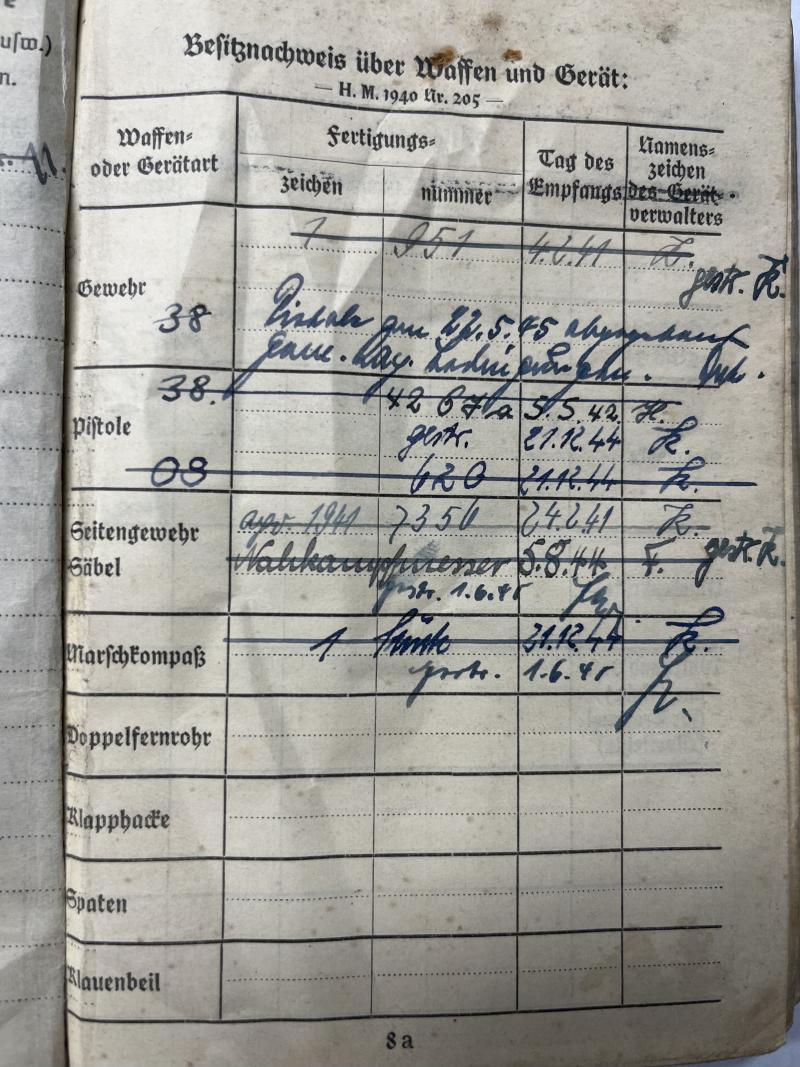 usw.)
n.
Besitznachweis über Waffen und Gerät:
— H. M. 1940 Nr. 205 —
Waffen-
oder Gerätart
Fertigungs-
zeichen
nummer
Tag des
Empfangs
Namens-
zeichen
des Gerät-
verwalters
1 951 4.2.41 K.
gestr. K.
Gewehr
38 Pistole am 22.5.45 abgegeben
38. 4267a 5.5.42. H.
Pistole gestr. 21.12.44 K.
08 620 21.12.44 K.
Seitengewehr 1941 7356 24.2.41 K.
Säbel Nahkampfmesser 5.8.44. F. gestr. K.
gestr. 1.6.45
Marschkompaß 1 Stück 31.12.44 K.
gestr. 1.6.45
Doppelfernrohr
Klapphacke
Spaten
Klauenbeil
8a